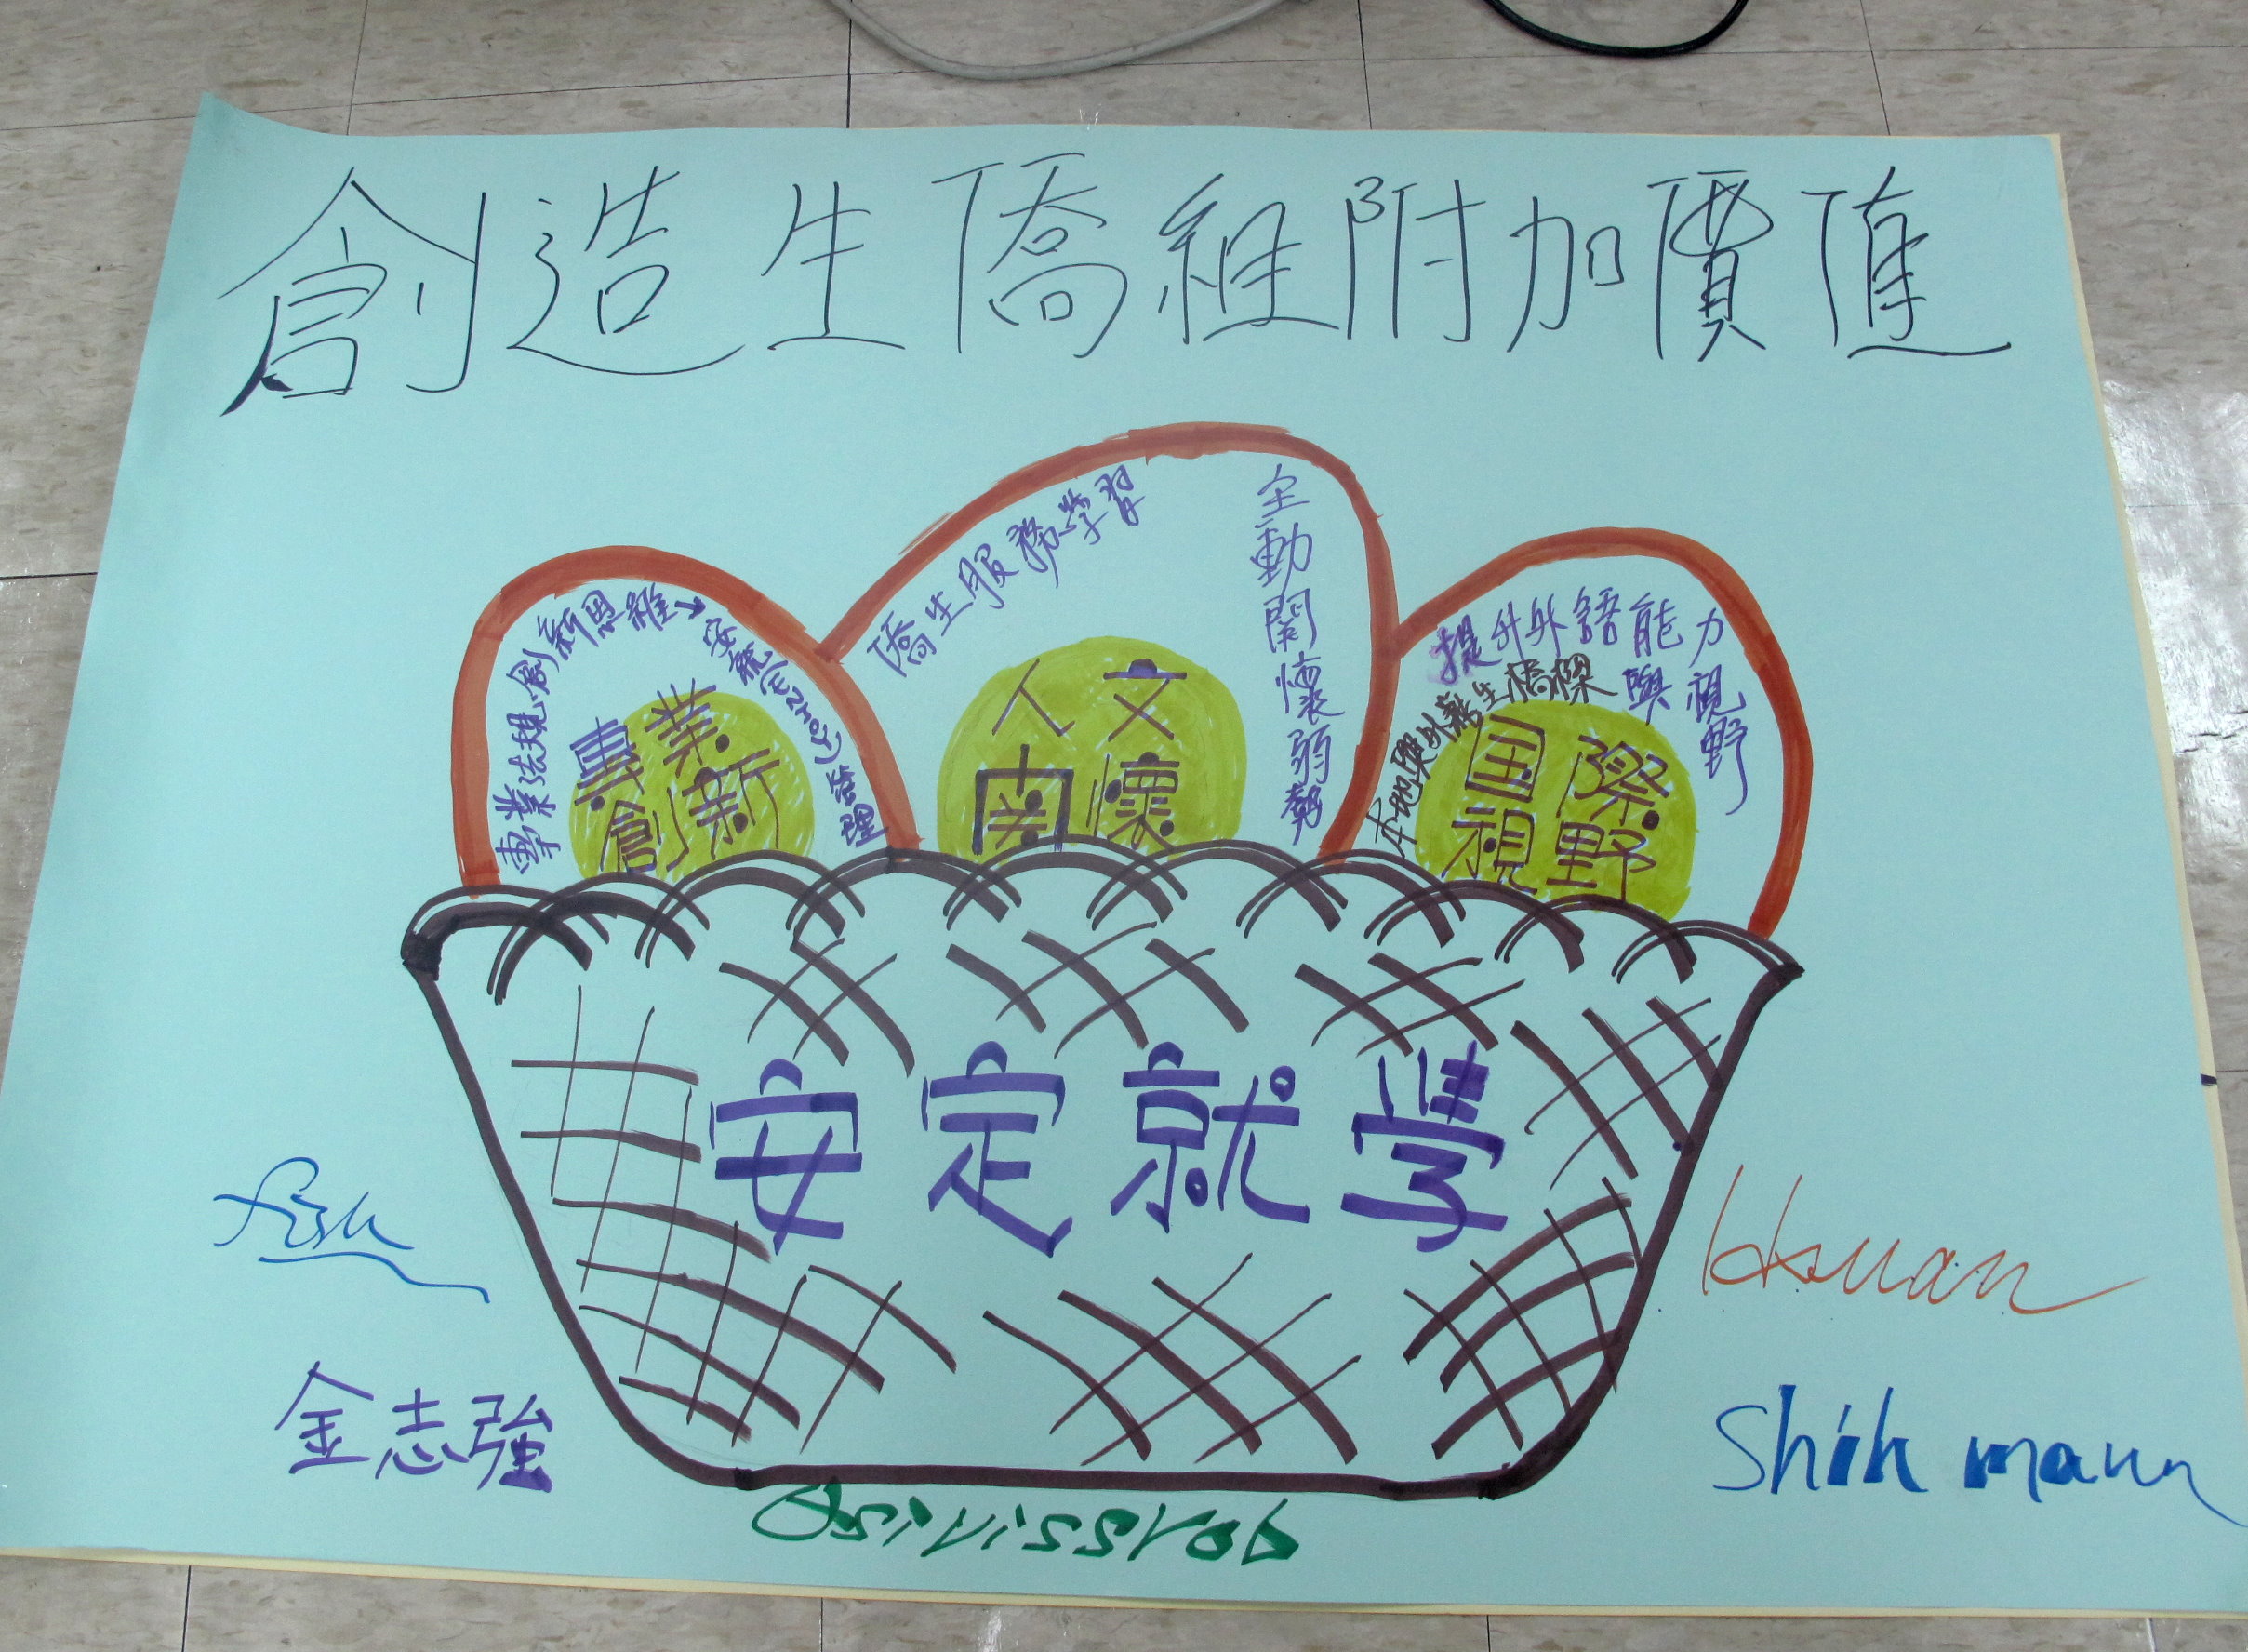 創造生僑組附加價值
專業法規創新思維→安統(EZMOVE)管理
專業
創新
僑生服務學習
主動關懷弱勢
人文
關懷
提升外語能力
與視野
本地與外籍生橋樑
國際
視野
安定就學
Hsuan
金志強
Shih mann